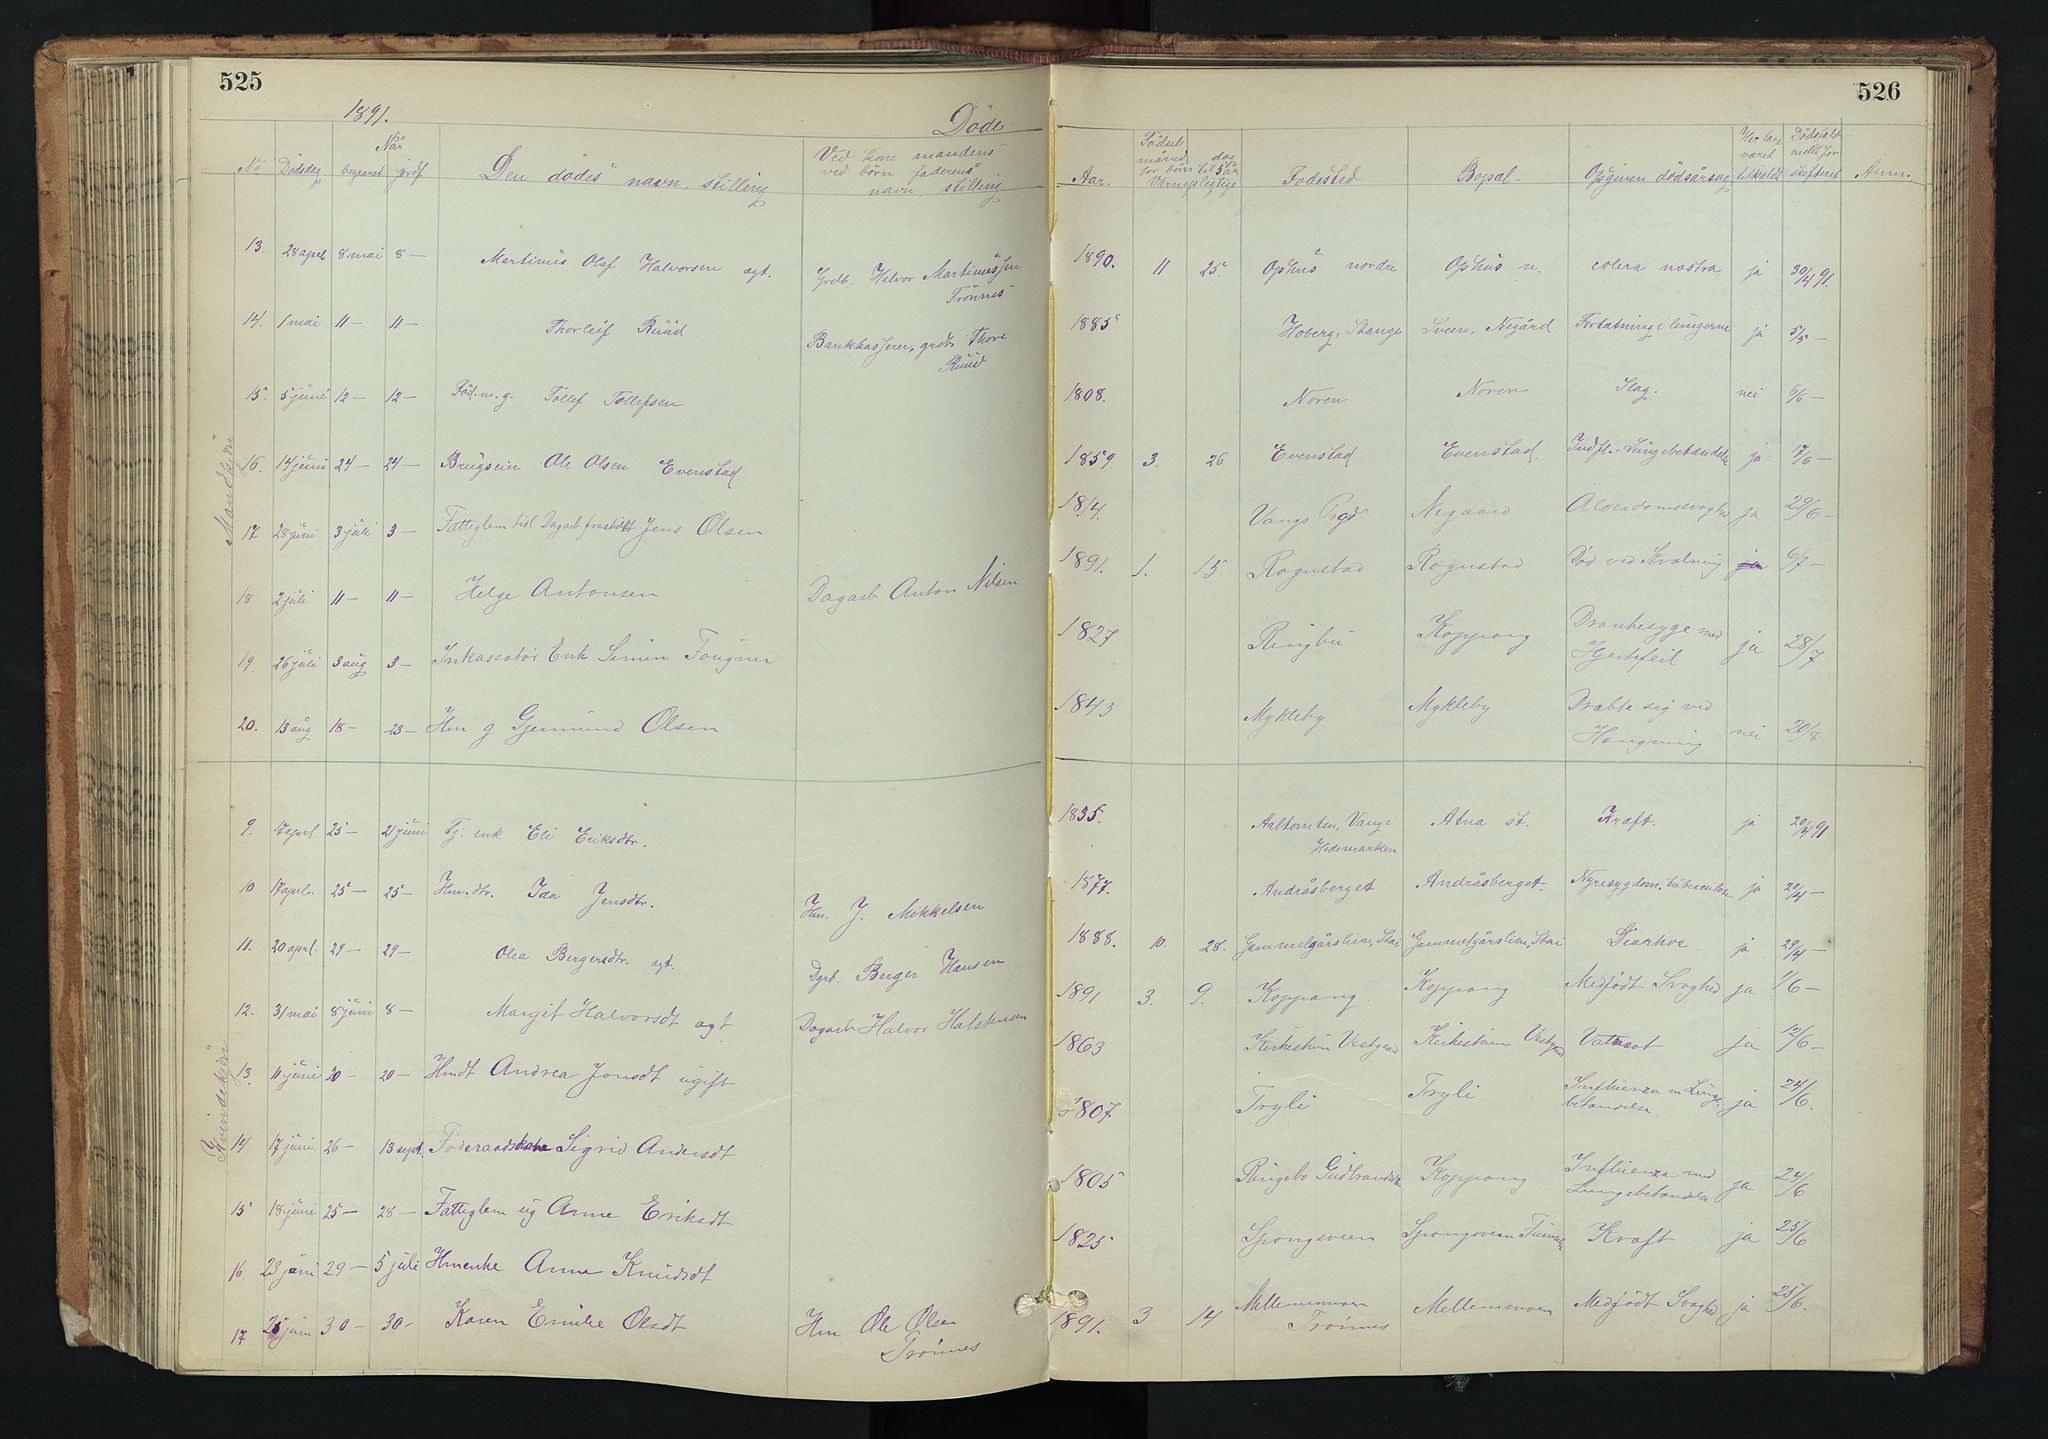 525
526
1891.
Döde
No
Dödsdag
Når
begravet
jordf
Den dödes navn, stilling
Ved kone mandens
ved börn faderens
navn, stilling
Aar.
Födsel
måned
dag
for börn til 5 år
Værnepligtige
Födested
Bopæl.
Opgiven dödsårsag
Har læge
været
tilkaldt
Dödsfald
meldt for
skifteret
Anm.
Mandkjön
13. 28 aprl 8 mai 8 — Martinus Olaf Halvorsen ægt. Grdb. Halvor Martinussen 1890. 11 25 Ophus nordre Ophus n. colera nostra ja 30/4 91.
Trönnes
14. 1 mai 11 — 11 — Thorleif Ruud Bankkasserer, grdb Thore 1885 Hoberg, Stange Sveen, Negård Fortætning i lungerne ja 5/5 —
Ruud
15. 5 juni 12 — 12 — Föd.m.g. Tollef Tollefsen 1808. Noren Noren Slag. nei 6/6 —
16. 14 juni 24 — 24 — Brugseier Ole Olsen Evenstad 1859 3. 26 Evenstad Evenstad. Indfl. Lungebetændelse ja 17/6 —
17 28 juni 3 juli 3 — Fattiglem tidl Dagarb fraskilt Jens Olsen 1814. Vangs Prgd Negaard Alderdomssvaghed ja 29/6 —
18 2 juli 11 — 11 — Helge Antonsen Dagarb Anton Nilsen 1891. 1. 15. Rognstad Rognstad Död ved Kvælning ja 6/7 —
19 26 juli 3 aug 3 — Inkassator Enk Simen Fougner 1827 Ringbu Koppang Drankesyge med ja 28/7
Hjertefeil
20. 13 aug 18 — 23 — Hm g Gjermund Olsen 1843 Mykleby Mykleby Dræbte sig ved
Hængning nei 20/8
Kvindekjön
9. 17 aprl 25 — 21 juni Tj. enk Eli Eriksdtr. 1835. Aaltomten, Vang i Atna st. Kræft. ja 20/4 91
Hedemarken
10 17 aprl. 25 — 25 — Hm. dtr. Ida Jensdtr. Hm. J. Mikkelsen 1877. Andråsberget Andråsberget. Nyresygdom, tuberculose ja 20/4 —
11. 20 aprl. 29 — 29 — Olea Bergersdtr. ægt. Dgrb. Berger Hansen 1888. 10. 28. Gammelgårslien, Stai Gammelgårslien, Stai Diarhoe ja 29/4 —
12. 31 mai 8 juni 8 — Margit Halvorsdt ægt Dagarb Halvor Halstensen 1891 3. 9. Koppang Koppang Medfödt Svaghed ja 1/6 —
13. 11 juni 20 — 20 — Hmdt Andrea Jonsdt ugift 1863 Kirkestuen Vestgaard Kirkestuen Vestgaard Vattersot ja 12/6 —
14 17 juni 26 — 13 sept. Föderaadskone Sigrid Andersdt 1807 Tryli Tryli Influenza m Lunge- ja 24/6.
betændelse
15 18 juni 25 — 28 — Fattiglem ug Anne Eriksdt 1805 Ringebo Gudbrandsd. Koppang Influenza med ja 24/6
Lungebetændelse
16 23 juni 29 — 5 juli Hmenke Anne Knudsdt 1825 Spongsveen Spongsveen Kræft ja 25/6
17 25 juni 30 — 30 — Karen Emilie Olsdt Hm Ole Olsen 1891. 3 14 Mellemmoen Mellemmoen Medfödt Svaghed ja 25/6.
Trönnes Trönnes